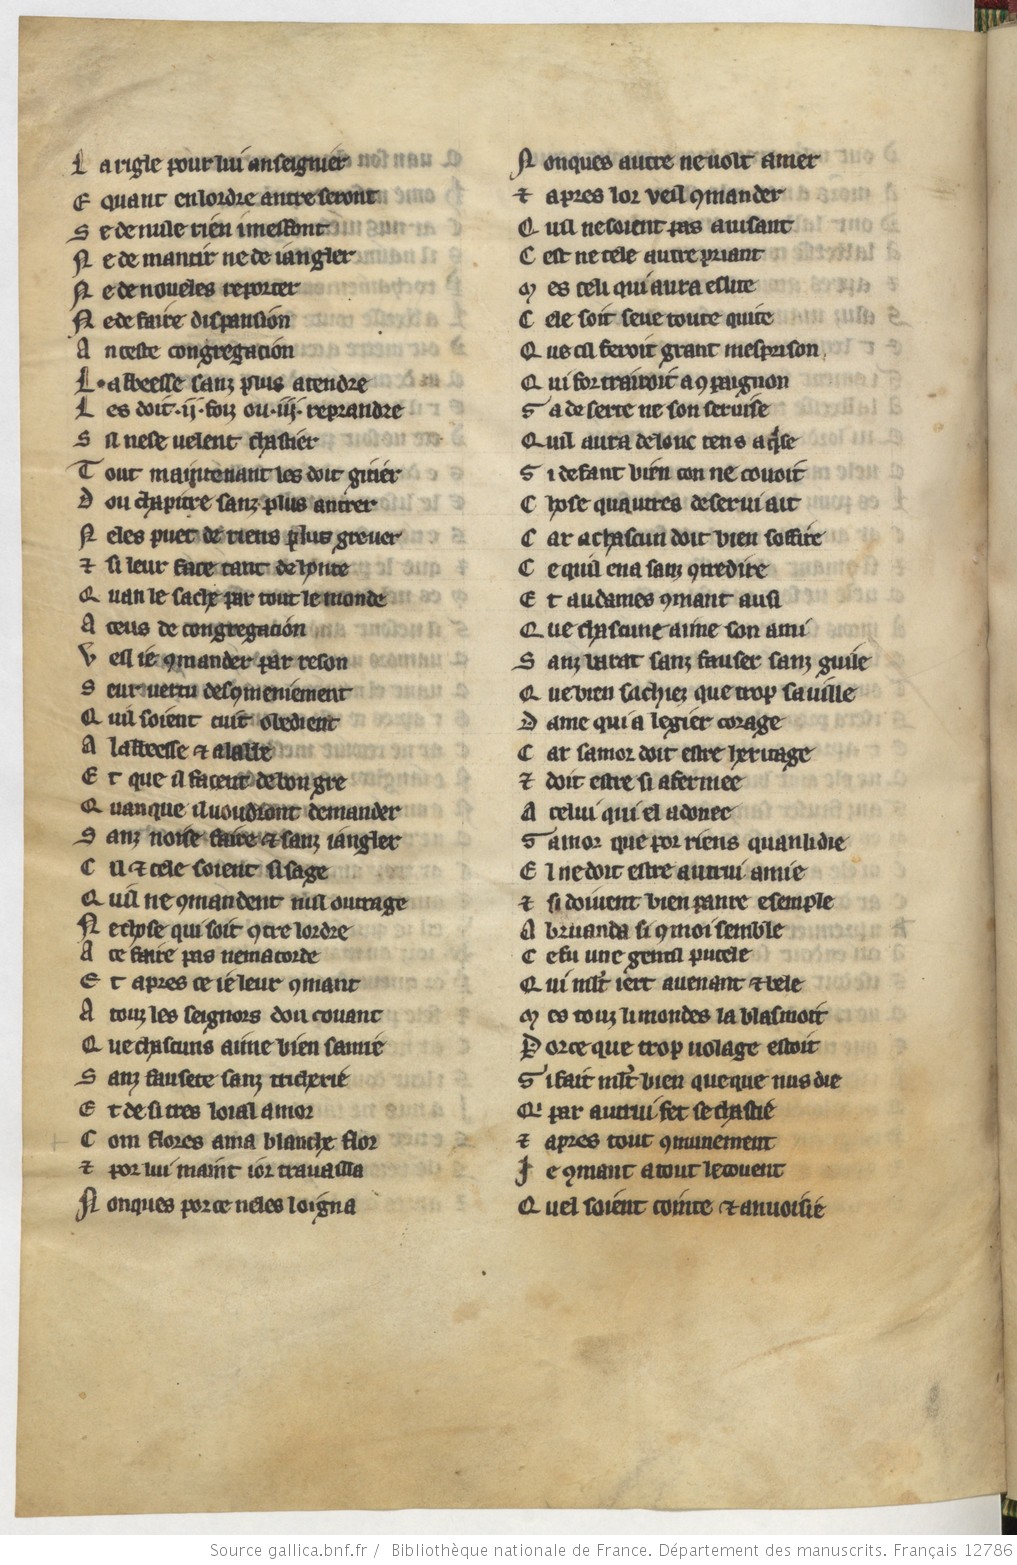 La rigle pour lui anseignier
E quant en lordre antre seront
Se de nule rien i mesfont
Ne de mantir ne de iangler
Ne de noueles reporter
Ne de faire dispansion
An ceste congregacion
L'abbeesse sanz plus atendre
Les doit .ij. foiz ou .iij. reprandre
Sil ne se uelent chastier
Tout maintenant les doit gitier
Dou chapitre sanz plus antrer
Neles puet de riens plus greuer
⁊ si leur face tant de honte
Quan le sache par tout le monde
A ceus de congregacion
Vel ie ꝯmander par reson
Seur uertu desꝯmeniement
Quil soient tuit obedient
A labbeesse ⁊ a labbe
Et que il facent de bon gre
Quanque il uoudront demander
Sanz noise faire ⁊ sanz iangler
Cil ⁊ cele soient si sage
Quil ne ꝯmandent nul outrage
Ne chose qui soit ꝯtre lordre
A ce faire pas ne macorde
Et apres ce ie leur ꝯmant
A touz les seignors dou couant
Que chascuns aime bien samie
Sanz fausete sanz tricherie
Et de si tres loial amor
Com flores ama blanche flor
⁊ por lui maint ior trauailla
Nonques por ce neles loigna
Nonques autre ne uolt amer
⁊ apres lor veil ꝯmander
Quil ne soient pas auisant
Cest ne cele autre priant
Mes celi qui aura eslite
Cele soit seue toute quite
Que cil feroit grant mesprison
Qui fortrairoit a ꝯpaignon
Sa deserte ne son seruise
Quil aura de lonc tens aqise
Si defant bien con ne couoit
Chose quautres deserui ait
Car a chascun doit bien soffire
Ce quil en a sanz ꝯtredire
Et au dames ꝯmant ausi
Que chascune aime son ami
Sanz barat sanz fauser sanz guile
Que bien sachiez que trop sauille
Dame qui a legier corage
Car samor doit estre heritage
⁊ doit estre si afermee
A celui qui el a donee
Samor que por riens quan li die
El ne doit estre autrui amie
⁊ si doiuent bien panre esemple
A bruanda si ꝯ moi semble
Ce fu une gentil pucele
Qui mlt iert auenant ⁊ bele
Mes touz li mondes la blasmoit
Porce que trop uolage estoit
Si fait mlt bien que que nus die
Qi par autrui fet se chastie
⁊ apres tout ꝯmunement
Je ꝯmant a tout le couent
Quel soient cointe ⁊ anuoisie
Source gallica.bnf.fr / Bibliothèque nationale de France. Département des manuscrits. Français 12786